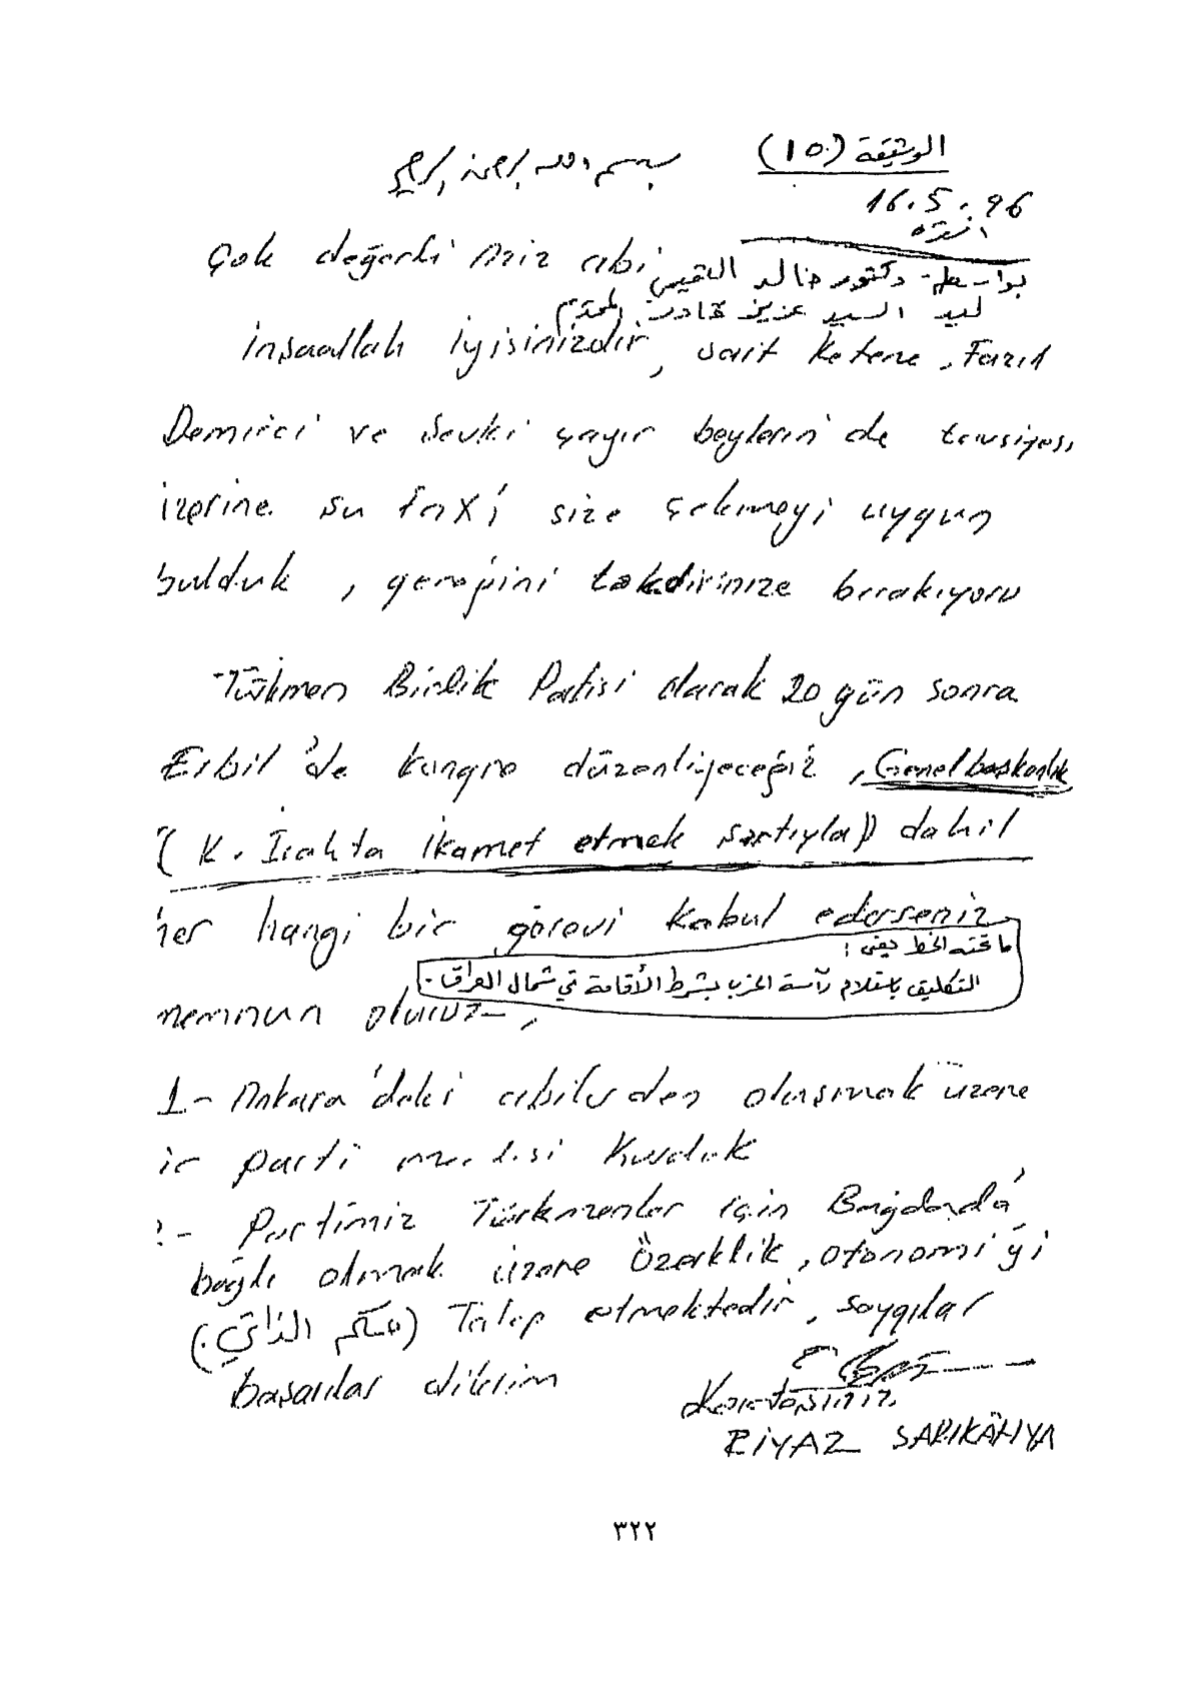 الوثيقة (١٥)
بسم الله الرحمن الرحيم
16.5.96
انقره
Çok değerli Aziz abi
بواسطة دكتور خالد القيسي
ليد السيد عزيز قادر المحترم
İnşaallah iyisinizdir, Sait Ketene, Fazıl
Demirci ve Şevki Çayır beylerin de tavsiyesi
üzerine şu fax'ı size çekmeyi uygun
bulduk, gereğini takdirinize bırakıyoru
Türkmen Birlik Partisi olarak 20 gün sonra
Erbil'de kongre düzenliyeceğiz, Genel başkanlık
(K. Irakta ikamet etmek şartıyla) dahil
her hangi bir görevi kabul ederseniz
ما تحته الخط يعني :
التكليف باستلام رآسة الحزب بشرط الأقامة في شمال العراق .
memnun oluruz,
1- Ankara'daki abilerden oluşmak üzere
ir parti meclisi kurduk
2- Partimiz Türkmenler için Bağdarda'
bağlı olmak üzere Özerklik, otonomi'yi
(حكم الذاتي.) Talep etmektedir, saygılar
başarılar dilerim
Kardeşiniz
RİYAZ SARIKÂHYA
٣٢٢